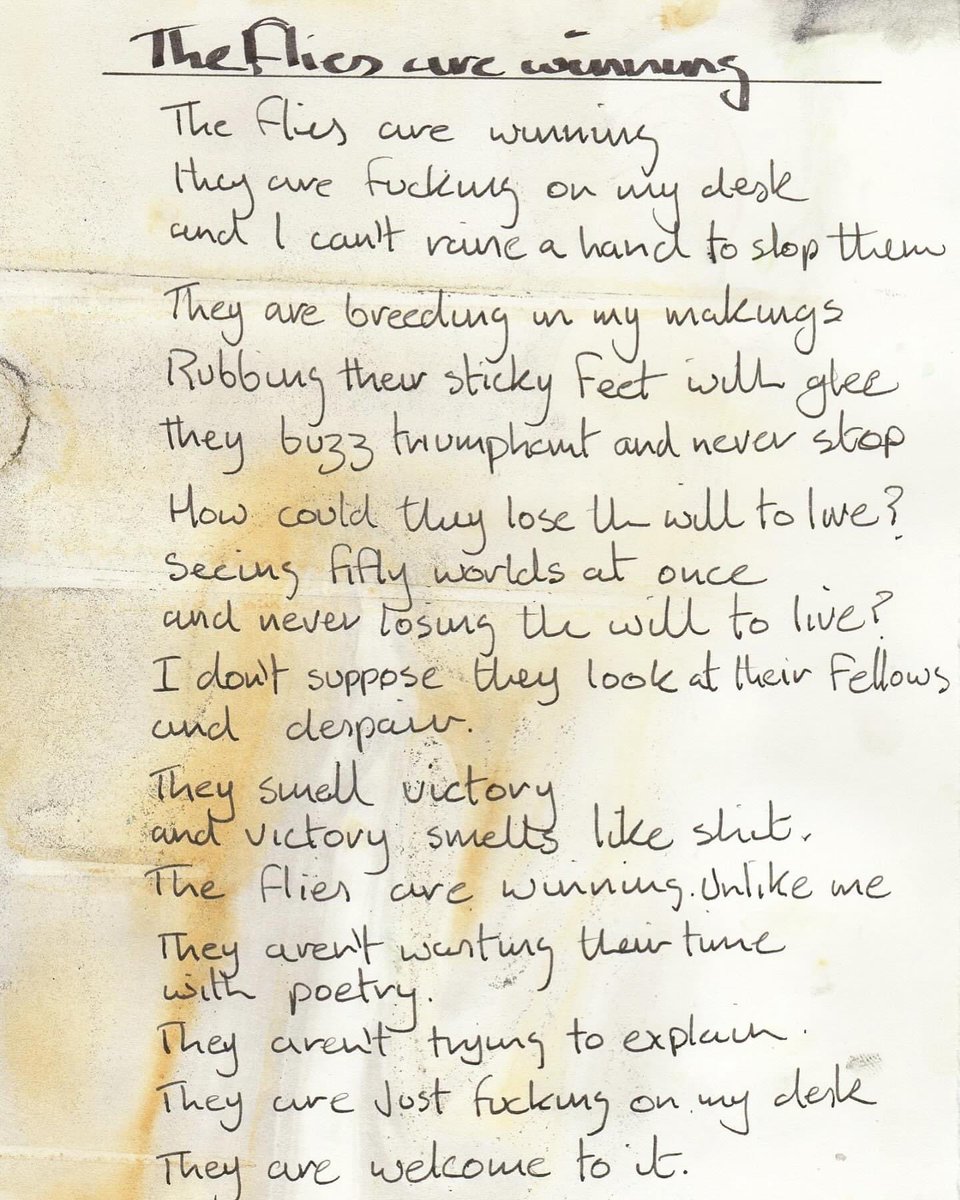 The flies are winning
The flies are winning
they are fucking on my desk
and I can't raise a hand to stop them
They are breeding in my makings
Rubbing their sticky feet with glee
they buzz triumphant and never stop
How could they lose the will to live?
Seeing fifty worlds at once
and never losing the will to live?
I don't suppose they look at their fellows
and despair.
They smell victory
and victory smells like shit.
The flies are winning. Unlike me
They aren't wasting their time
with poetry.
They aren't trying to explain.
They are Just fucking on my desk
They are welcome to it.